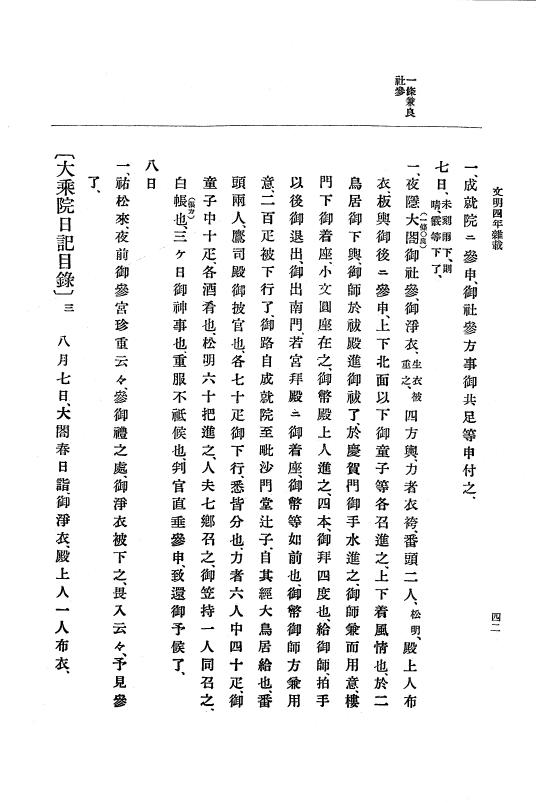 文明四年雜載
四二
一條兼良
社參
一、成就院ニ參申、御社參方事御共足等申付之、
七日、未刻雨下、則
晴、霰等下了、
一、夜隱大閤御社參、御淨衣、生衣被
重之、四方輿、力者衣袴番頭二人、松明、殿上人布
(一條〇良)
衣、板輿御後ニ參申、上下北面以下御童子等各召進之、上下着風情也、於二
鳥居御下輿、御師於祓殿進御祓了、於慶賀門御手水進之、御師兼而用意、樓
門下御着座小文圓座在之、御幣殿上人進之、四本、御拜四度也、給御師、拍手
以後御退出、御出南門、若宮拜殿ニ御着座、御幣等如前也、御幣御師方兼用
意、二百疋被下行了、御路自成就院至毗沙門堂辻子、自其經大鳥居給也、番
頭兩人、鷹司殿御披官也、各七十疋御下行、悉皆分也、力者六人中四十疋、御
童子中十疋、各酒肴也、松明六十把進之、人夫七鄉召之、御笠持一人同召之、
白帳也、三ケ日御神事也、重服不祗候也、判官直垂參申、致還御予候了、
(張カ)
八日
一、祐松來、夜前御參宮珍重云々、參御禮之處御淨衣被下之、畏入云々、予見參
了、
〔大乘院日記目錄〕三　八月七日、大閤春日詣御淨衣、殿上人一人布衣、